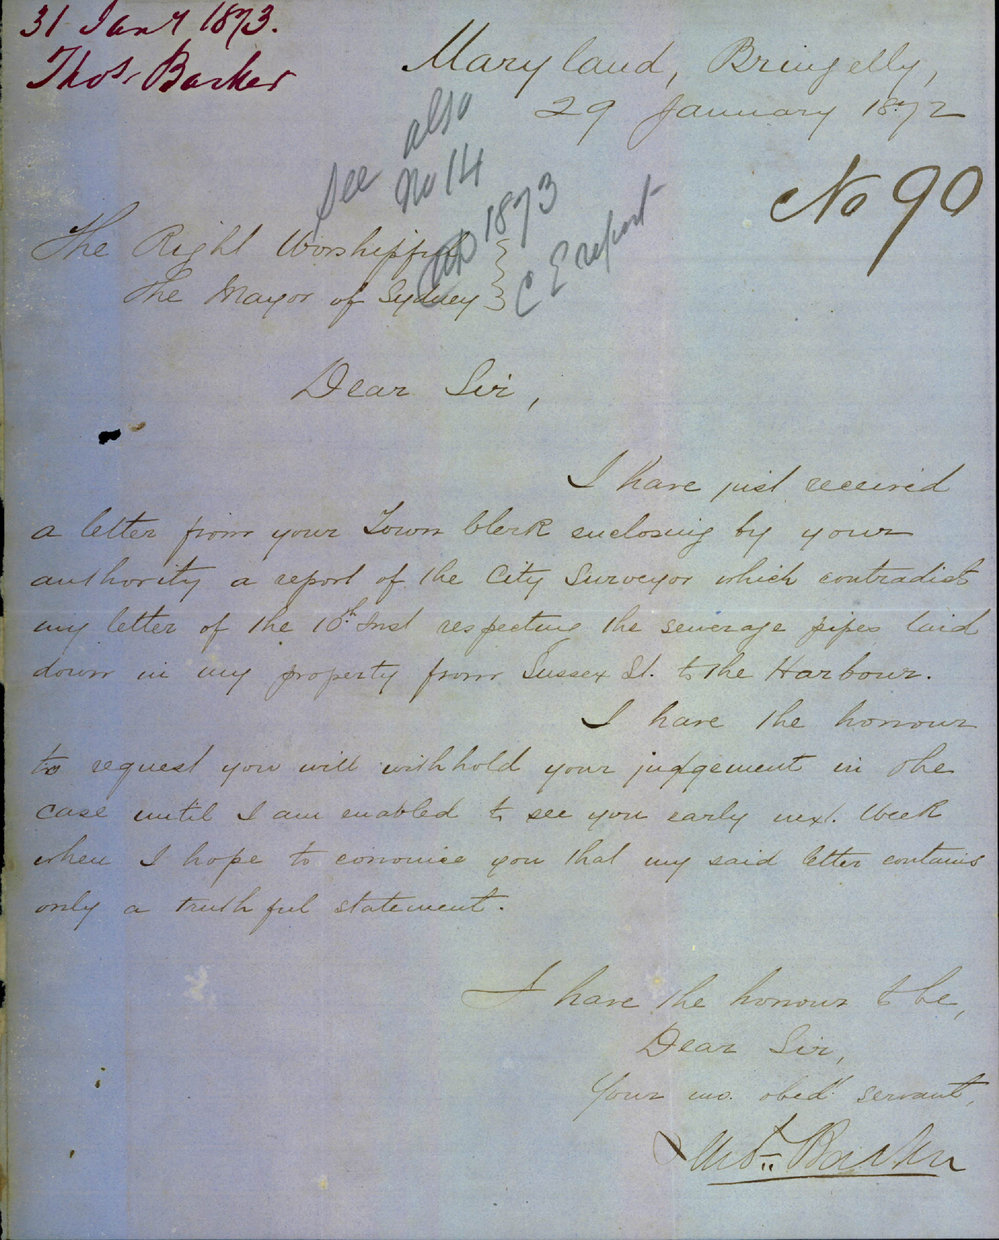 31 Jany 1873.
Thos. Barker
Maryland, Bringelly,
29 January 1872
See also
No 14
1873
C E report
No 90
The Right Worshipful
The Mayor of Sydney
Dear Sir,
I have just received
a letter from your Town Clerk enclosing by your
authority a report of the City Surveyor which contradicts
my letter of the 10th Inst respecting the sewerage pipes laid
down in my property from Sussex St. to the Harbour.
I have the honour
to request you will withhold your judgement in the
case until I am enabled to see you early next. Week
when I hope to convince you that my said letter contains
only a truthful statement.
I have the honour to be,
Dear Sir,
Your mo. obedt. servant,
Thos. Barker